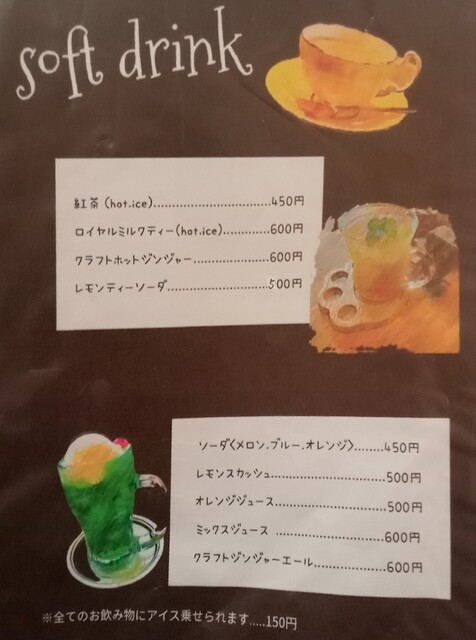 soft drink
紅茶 (hot.ice)..............................450円
ロイヤルミルクティー(hot.ice)............600円
クラフトホットジンジャー....................600円
レモンティーソーダ...........................500円
ソーダ〈メロン.ブルー.オレンジ〉........450円
レモンスカッシュ..............................500円
オレンジジュース..............................500円
ミックスジュース ............................600円
クラフトジンジャーエール...................600円
※全てのお飲み物にアイス乗せられます.....150円